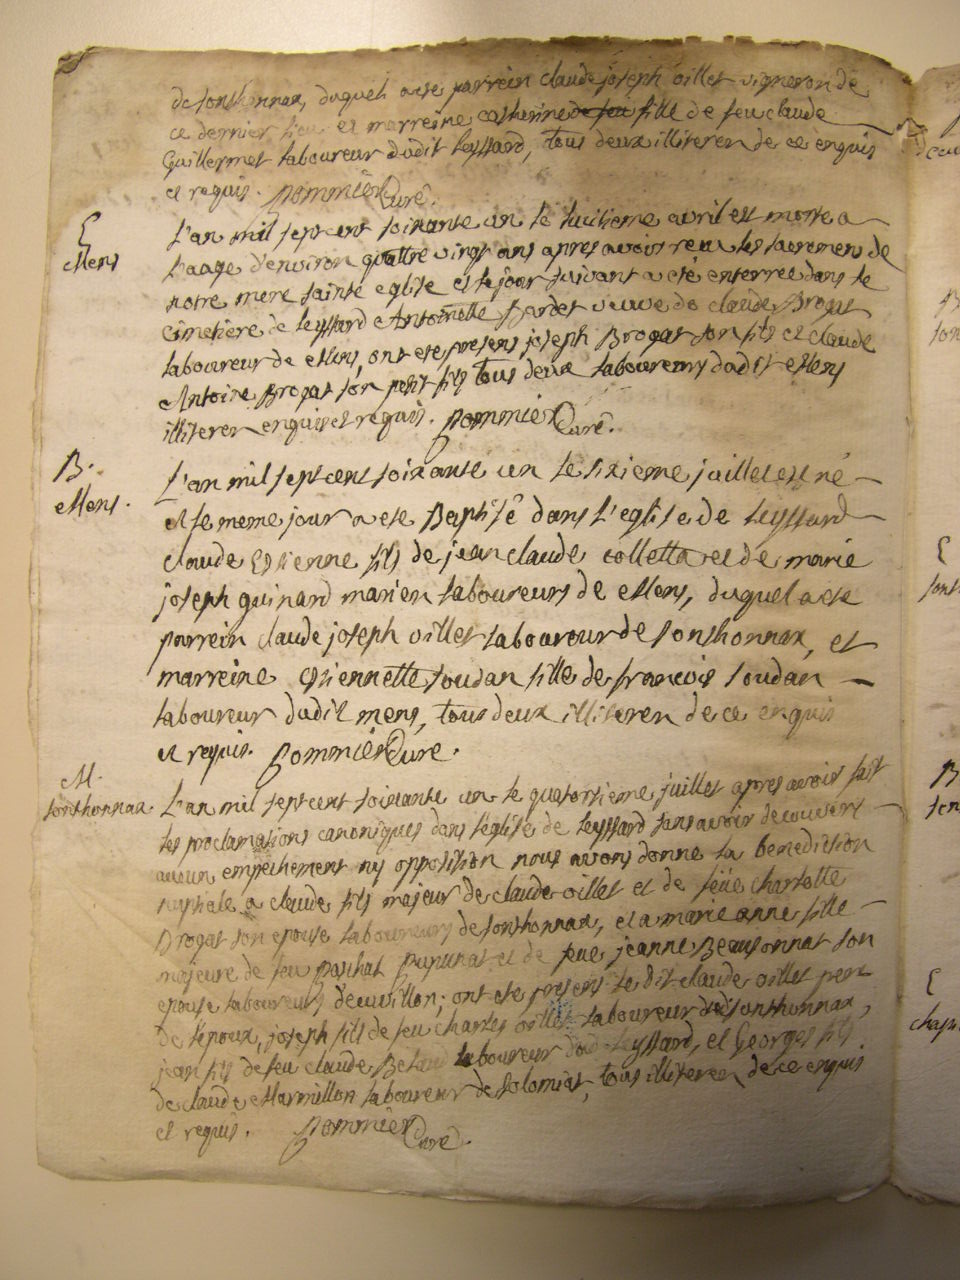 de sonthonnax, duquel a ete parrein claude joseph oillet vigneron de
ce dernier lieu et marreine catherine de feu fille de feu claude
Guillermet laboureur dudit leyssard, tous deux illiteren de ce enquis
et requis. pommier Curé.
E
Mens
L'an mil sept cent soixante un le huitieme avril est morte a
l'aage d'environ quattre vingt ans apres avoir reçu les sacremens de
notre mere sainte eglise et le jour suivant a eté enterree dans le
cimetiere de leyssard Antoinette Bardet veuve de claude Brogat
laboureur de Mens, ont ete presens joseph Brogat son fils et claude
Antoine Brogat son petit fils tous deux laboureurs dudit Mens
illiteren enquis et requis. pommier Curé.
B.
Mens.
L'an mil sept cent soixante un le sixieme juillet est né
et le meme jour a ete Baptisé dans l'eglise de leyssard
claude Estienne fils de jean claude colletta et de marie
joseph guinard marién laboureurs de Mens, duquel a ete
parrein claude joseph oillet laboureur de sonthonnax, et
marreine Estiennette soudan fille de francois soudan
laboureur dudit mens, tous deux illiteren de ce enquis
et requis. pommier Curé.
M.
sonthonnax.
L'an mil sept cent soixante un le quatorsieme juillet apres avoir fait
les proclamations canoniques dans l'eglise de leyssard sans avoir decouvert
aucun empechement ny opposition nous avons donne la benediction
nuptiale a claude fils majeur de claude oillet et de feüe charlotte
Brogat son epouse laboureurs de sonthonnax, et a marie anne fille
majeure de feu paschat pupunat et de feue jeanne Beausonnat son
epouse laboureurs d'euvillon; ont ete presens le dit claude oillet pere
de l'epoux, joseph fils de feu charles oillet laboureur de sonthonnax,
jean fils de feu claude laboureur dudit leyssard, et Georges fils
de claude Marmillon laboureur de solomiat, tous illiteren de ce enquis
et requis. pommier Curé.